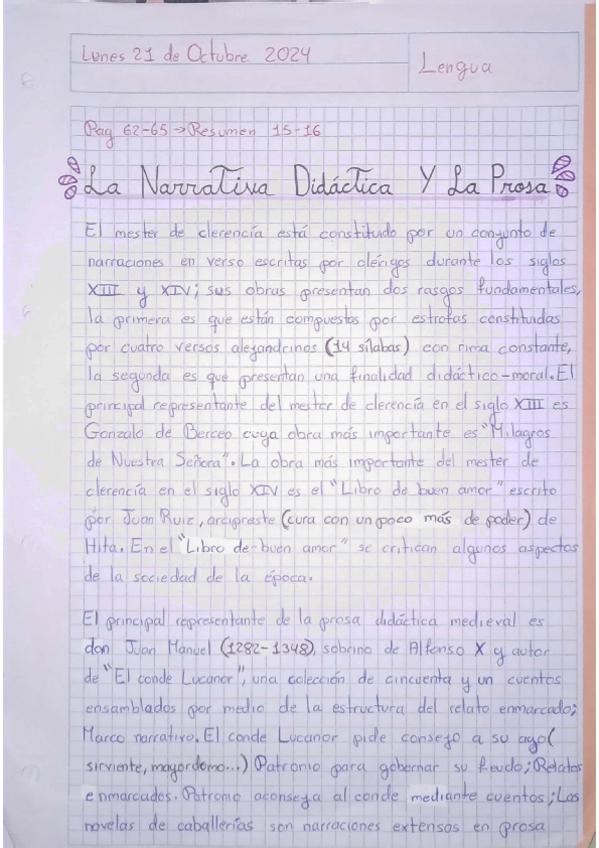 Lunes 21 de Octubre 2024
Lengua
Pag 62-65 → Resumen 15-16
La Narrativa Didáctica Y La Prosa
El mester de clerencía está constituido por un conjunto de
narraciones en verso escritas por clérigos durante los siglos
XIII y XIV; sus obras presentan dos rasgos fundamentales,
la primera es que están compuestas por estrofas constituidas
por cuatro versos alejandrinos (14 sílabas) con rima constante,
la segunda es que presentan una finalidad didáctico-moral. El
principal representante del mester de clerencía en el siglo XIII es
Gonzalo de Berceo cuya obra más importante es "Milagros
de Nuestra Señora". La obra más importante del mester de
clerencía en el siglo XIV es el "Libro de buen amor" escrito
por Juan Ruiz, arcipreste (cura con un poco más de poder) de
Hita. En el "Libro de buen amor" se critican algunos aspectos
de la sociedad de la época.
El principal representante de la prosa didáctica medieval es
don Juan Manuel (1282-1348), sobrino de Alfonso X y autor
de "El conde Lucanor", una colección de cincuenta y un cuentos
ensamblados por medio de la estructura del relato enmarcado;
Marco narrativo. El conde Luccanor pide consejo a su ayo(
sirviente, mayordomo...) Patronio para gobernar su feudo; Relatos
enmarcados. Patronio aconseya al conde mediante cuentos; Las
novelas de caballerías son narraciones extensas en prosa